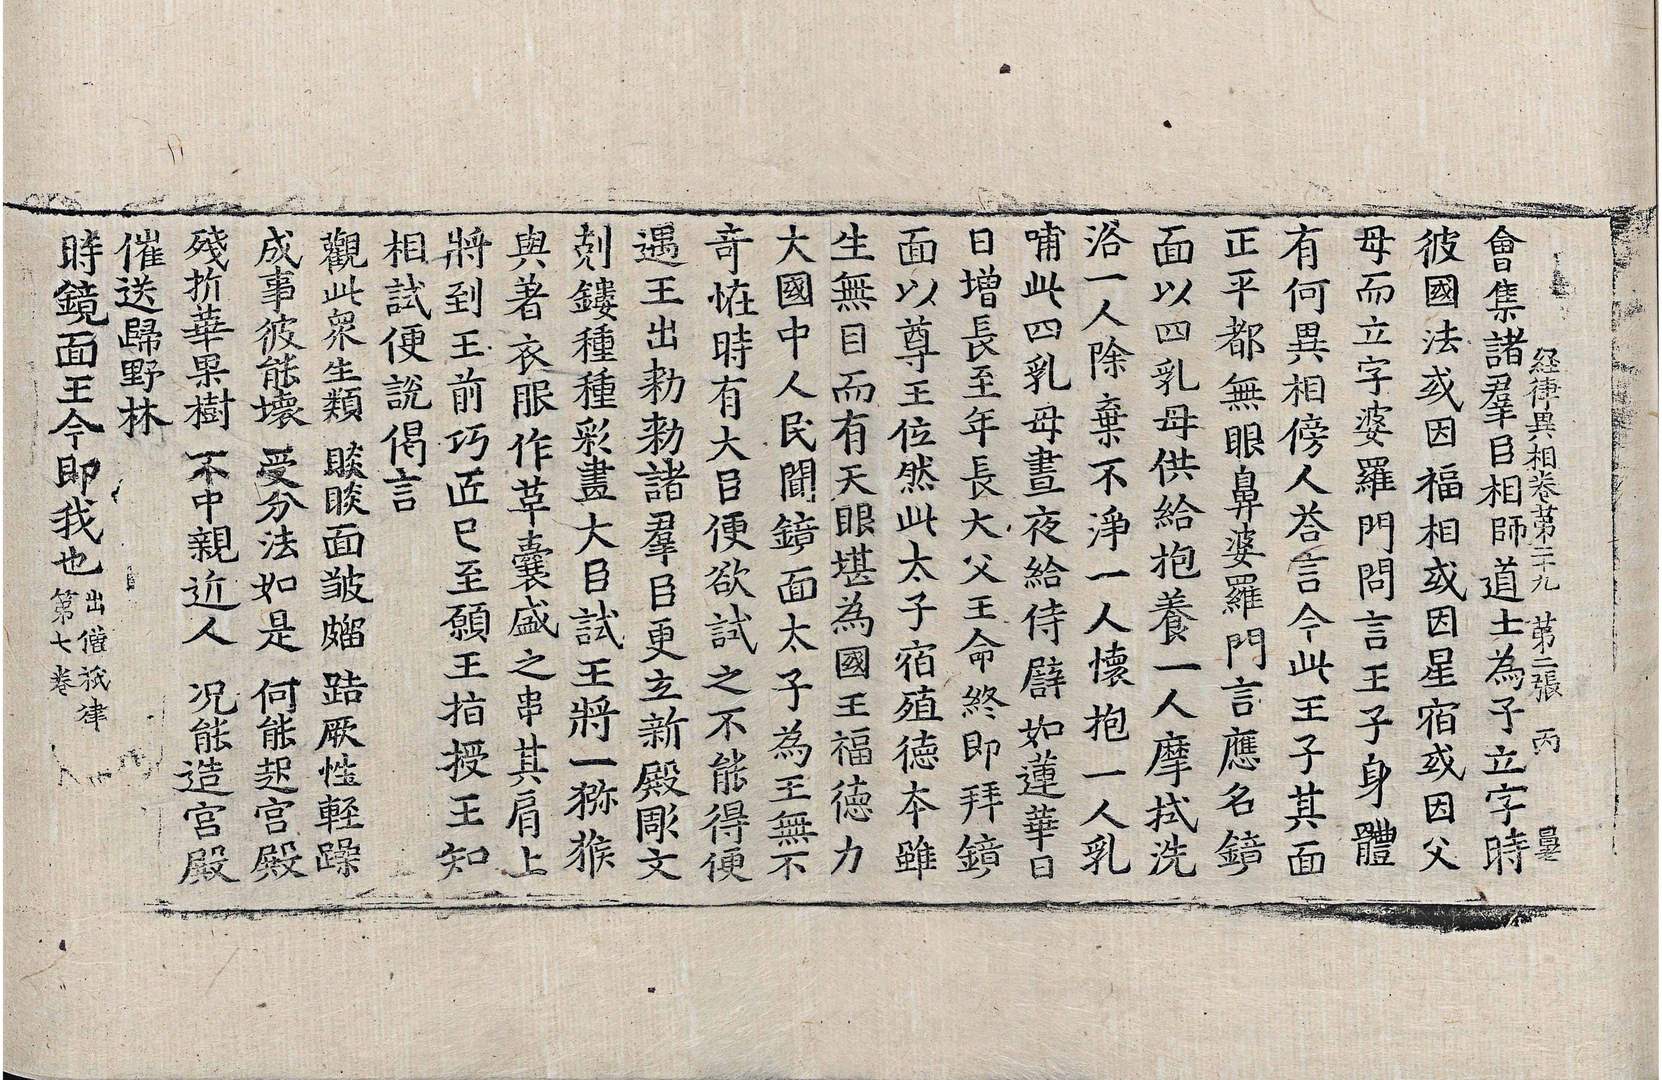 経律異相卷苐二十九 苐二張 丙
會集諸羣臣相師道士為子立字時
彼國法或因福相或因星宿或因父
母而立字婆羅門問言王子身體
有何異相傍人荅言今此王子其面
正平都無眼鼻婆羅門言應名鏡
面以四乳母供給抱養一人摩拭洗
浴一人除棄不淨一人懷抱一人乳
哺此四乳母晝夜給侍譬如蓮華日
日增長至年長大父王命終即拜鏡
面以尊王位然此太子宿殖德本雖
生無目而有天眼堪為國王福德力
大國中人民聞鏡面太子為王無不
竒恠時有大臣便欲試之不能得便
遇王出勑勑諸羣臣更立新殿彫文
刻鏤種種彩畫大臣試王將一獼猴
與著衣服作革囊盛之串其肩上
將到王前巧匠已至願王指授王知
相試便說偈言
觀此衆生類 睒睒面皺𪖐 䠧厥性輕躁
成事彼能壞 受分法如是 何能起宮殿
殘折華果樹 不中親近人 况能造宮殿
催送歸野林
時鏡面王今即我也 出僧祇律
第七卷